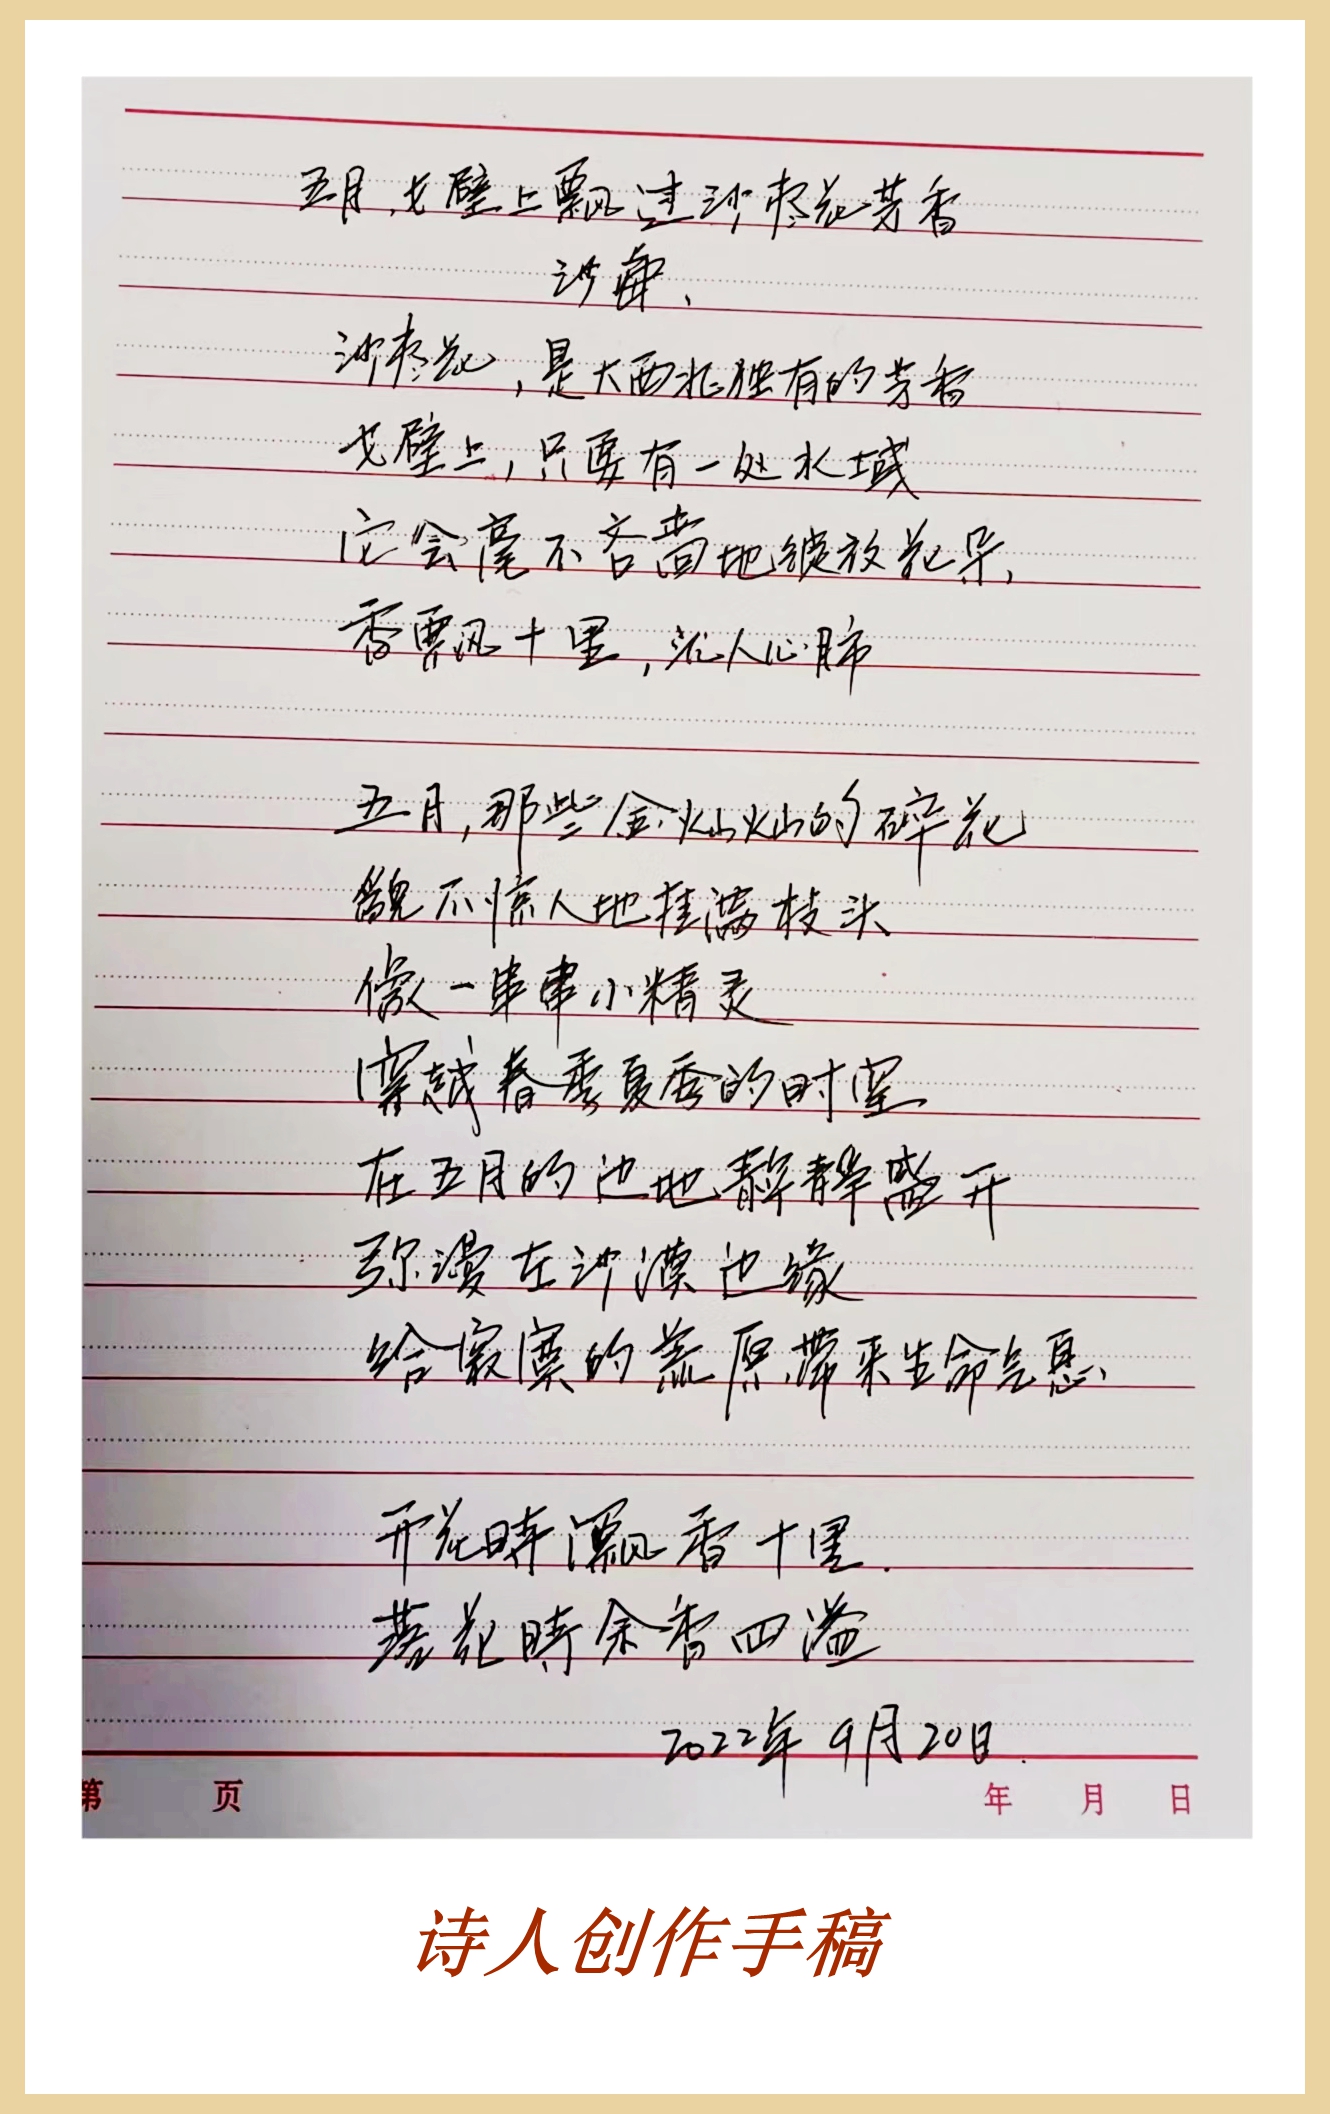 五月，戈壁上飘过沙枣花芳香
沙海
沙枣花，是大西北独有的芳香
戈壁上，只要有一处水域
它会毫不吝啬地绽放花朵，
香飘十里，沁人心肺
五月，那些金灿灿的碎花
貌不惊人地挂满枝头
像一串串小精灵
穿越春季夏季的时空
在五月的边地静静盛开
弥漫在沙漠边缘
给寂寞的荒原带来生命气息、
开花時飘香十里.
落花時余香四溢
2022年9月20日.
第 页 年 月 日
诗人创作手稿